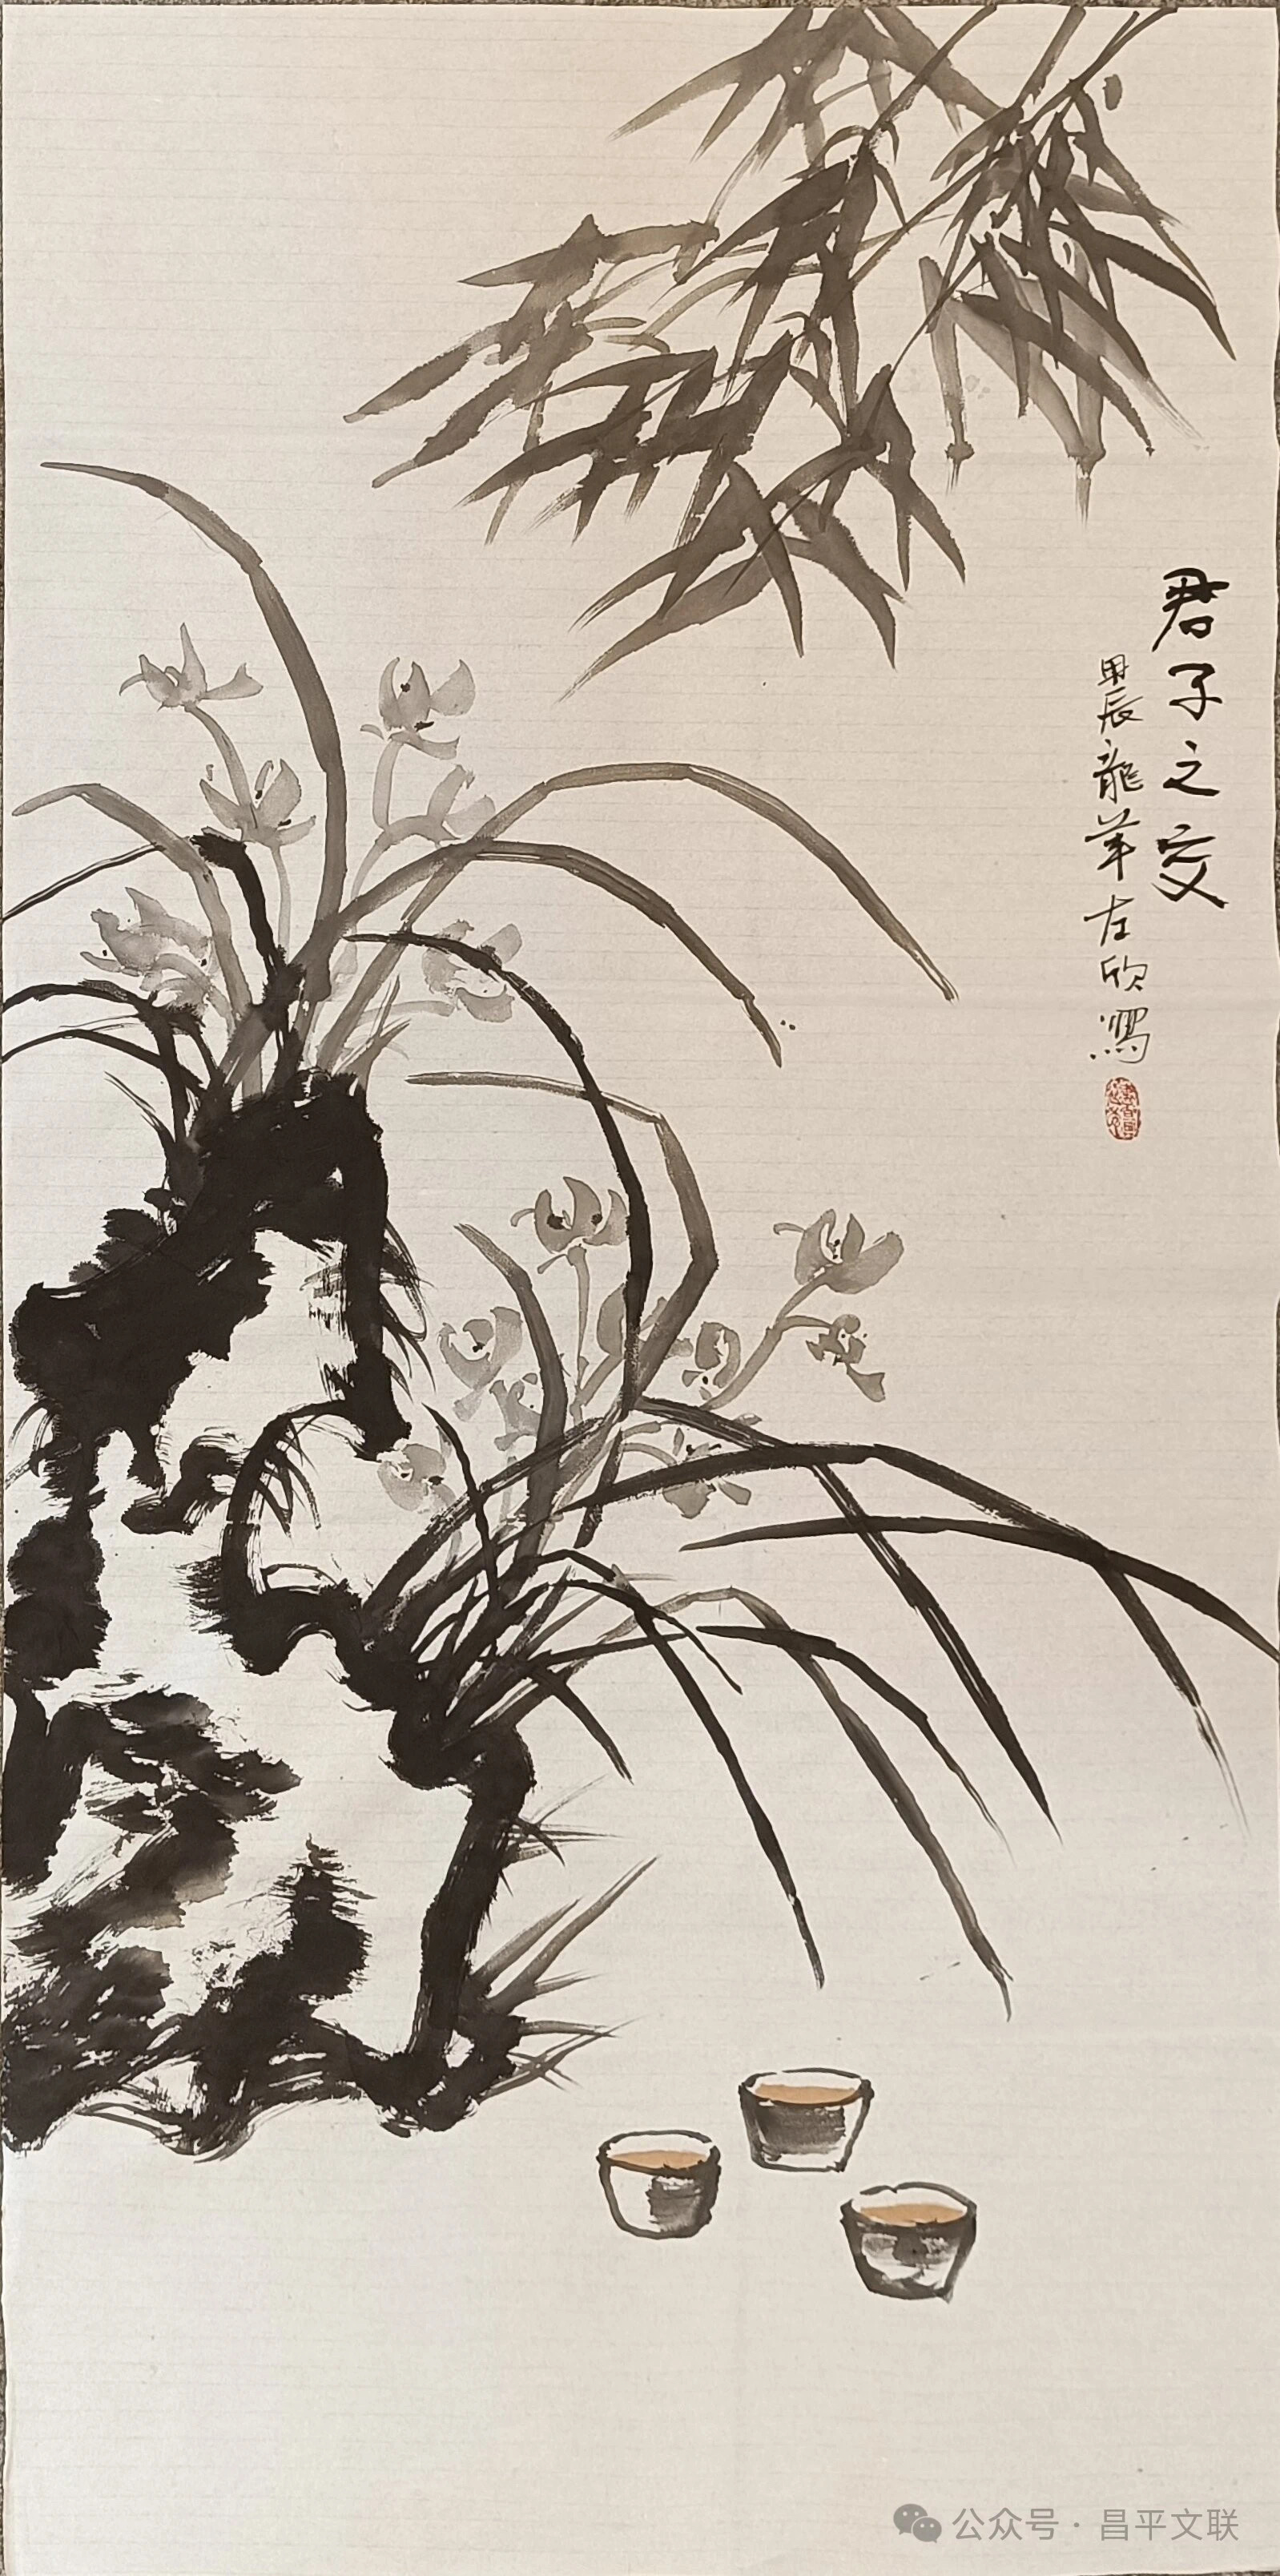 君子之交
甲辰龍年左欣寫
公众号·昌平文联